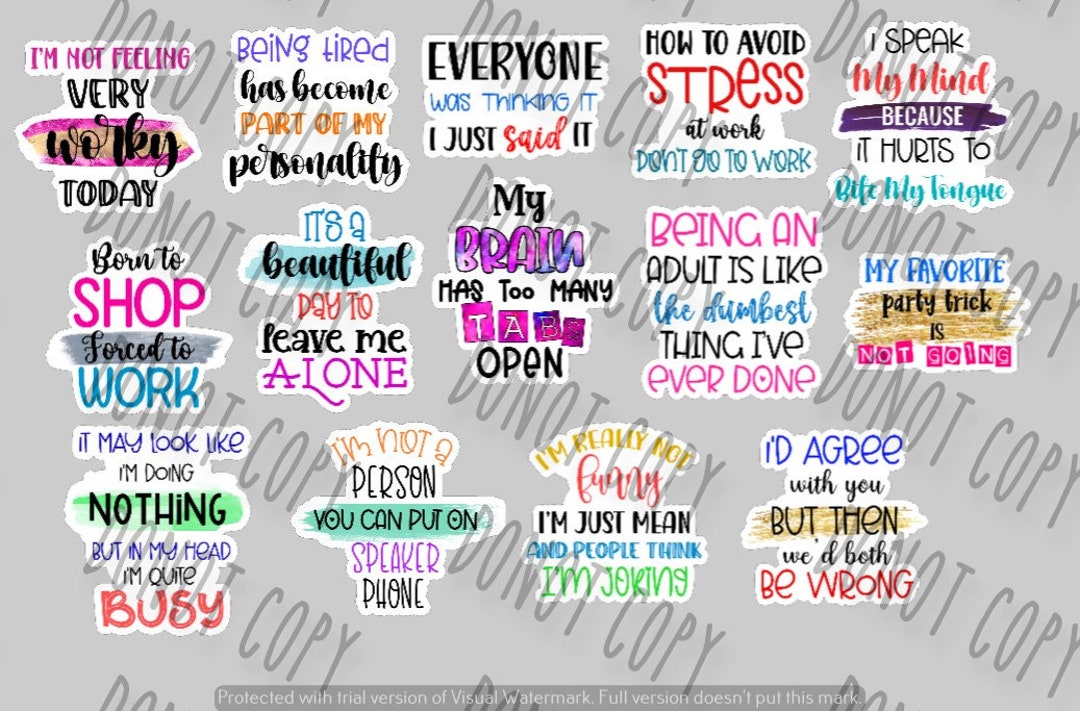 I'M NOT FEELING
VERY
worky
TODAY
Being tired
has become
PART OF MY
personality
EVERYONE
WAS THINKING IT
I JUST said IT
HOW TO AVOID
STRESS
at work
DON'T GO TO WORK
I SPEAK
My Mind
BECAUSE
IT HURTS TO
Bite My Tongue
Born to
SHOP
Forced to
WORK
IT'S A
beautiful
DAY TO
leave me
ALONE
My
BRAIN
HAS Too MANY
TABs
OPEN
BEING AN
ADULT IS LIKE
the dumbest
THING I'VE
EVER DONE
MY FAVORITE
party trick
IS
NOT GOING
IT MAY LOOK LIKE
I'M DOING
NOTHING
BUT IN MY HEAD
I'M QUITE
BUSY
I'M NOT A
PERSON
YOU CAN PUT ON
SPEAKER
PHONE
I'M REALLY NOT
funny
I'M JUST MEAN
AND PEOPLE THINK
I'M JOKING
I'D AGREE
with you
BUT THEN
we'd both
BE WRONG
DO NOT COPY
DO NOT COPY
DO NOT COPY
DO NOT COPY
DO NOT COPY
DO NOT COPY
Protected with trial version of Visual Watermark. Full version doesn't put this mark.